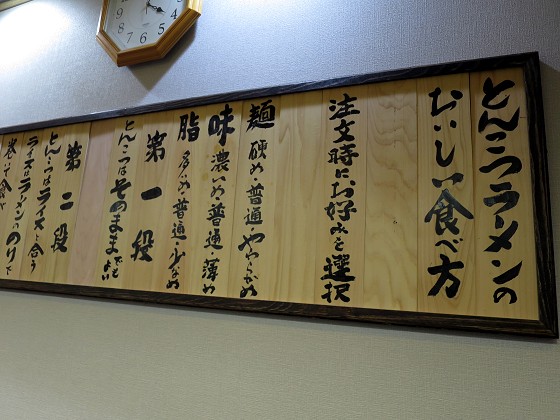 とんこつラーメンの
おいしい食べ方
注文時にお好みを選択
麺 硬め・普通・やわらかめ
味 濃いめ・普通・薄め
脂 多め・普通・少なめ
第一段
とんこつはそのままでもよい
第二段
とんこつはライスと合う
ライスはラーメンののりで
巻いて食べ